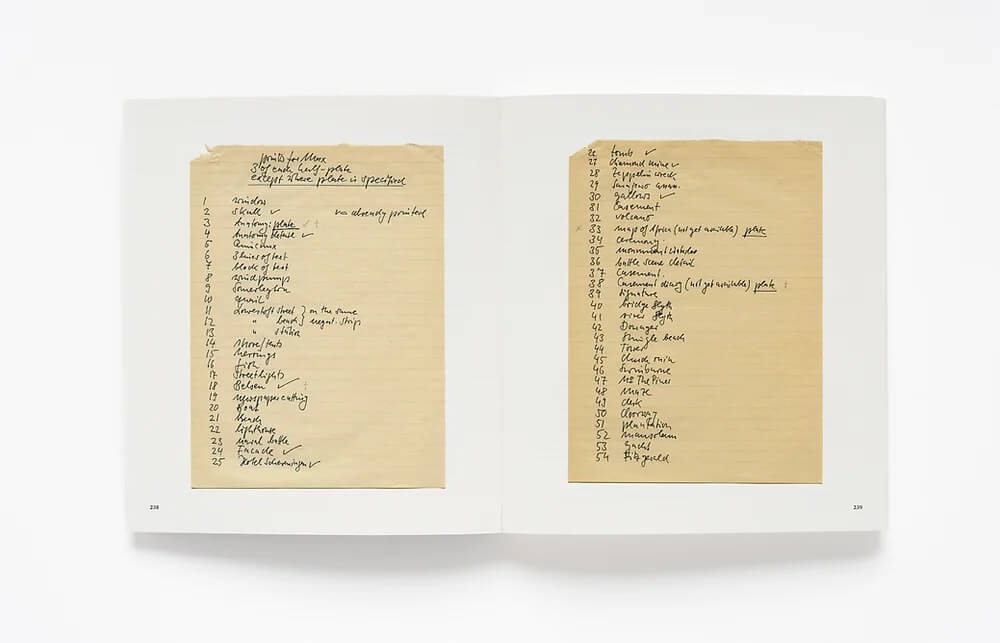 prints for Max
3 of each half-plate
except where plate is specified
1 window
2 skull ✓ ✓ = already printed
3 Anatomy: plate
4 Anatomy detail ✓
5 Quincunx
6 Skeins of text
7 block of text
8 windpumps
9 Somerleyton
10 quail
11 Lowestoft street } on the same
12 " beach } negat. strips
13 " station
14 shore/tents
15 herrings
16 fish
17 Streetlights
18 Belsen ✓
19 newspaper cutting
20 Boat
21 beach
22 lighthouse
23 naval battle
24 Facade ✓
25 Hotel Scheveningen ✓
238
26 tomb ✓
27 diamond mine ✓
28 Zeppelin wreck
29 Sarajevo assass.
30 gallows ✓
31 Casement
32 volcano
33 map of Africa (not yet available) plate
34 ceremony
35 monument
36 battle scene detail
37 Casement.
38 Casement diary (not yet available) plate
39 signature
40 bridge Blyth
41 river Blyth
42 Dowager
43 Shingle beach
44 Tower
45 Church ruin
46 Swinburne
47 No 2 The Pines
48 Maze
49 desk
50 doorway
51 plantation
52 mausoleum
53 yacht
54 Fitzgerald
239